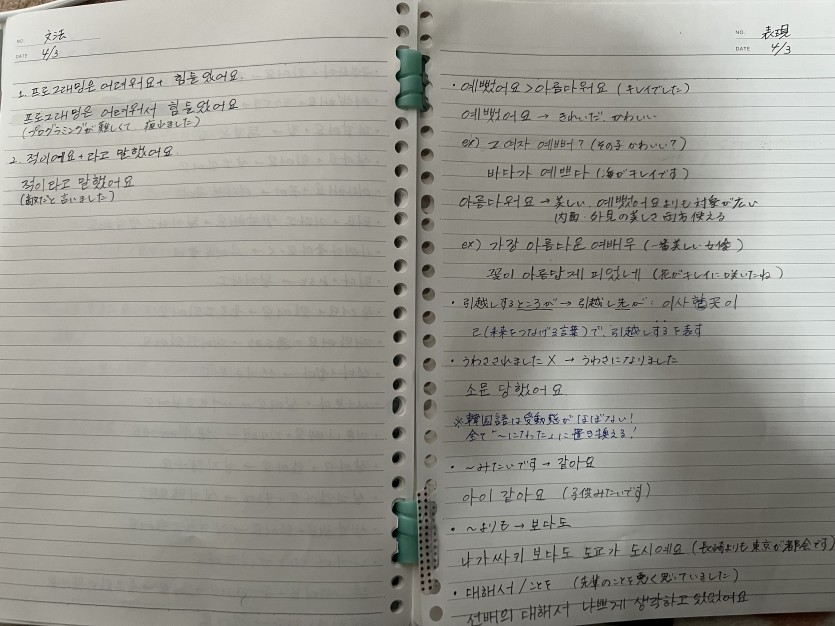 NO.
文法
DATE
4/3
1. 프로그래밍은 어려워요 + 힘들었어요
프로그래밍은 어려워서 힘들었어요
(プログラミングが難しくて 疲れました)
2. 적이에요 + 라고 말했어요
적이라고 말했어요
(敵だと言いました)
NO.
表現
DATE
4/3
・예뻤어요 > 아름다워요 (キレイでした)
예뻤어요 → きれいだ、かわいい
ex) 그 여자 예뻐? (その子かわいい?)
바다가 예쁘다 (海がキレイです)
아름다워요 → 美しい、예뻤어요よりも対象が広い
内面・外見の美しさ両方使える
ex) 가장 아름다운 여배우 (一番美しい女優)
꽃이 아름답게 피었네 (花がキレイに咲いたね)
・引越しするところが → 引越し先が : 이사할곳이
ㄹ(未来をつなげる言葉)で、引越しするを表す
・うわさされました X → うわさになりました
소문 당했어요
※韓国語は受動態がほぼない!
全て「~になった」に置き換える!
・~みたいです → 같아요
아이 같아요 (子供みたいです)
・~よりも → 보다도
나가싸키 보다도 도쿄가 도시에요 (長崎よりも東京が都会です)
・대해서 / ことを (先輩のことを悪く思っていました)
선배의 대해서 나쁘게 생각하고 있었어요